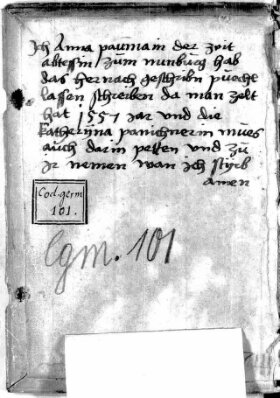 Ich Anna paumain der Zeit
abtessin zum nunburg hab
das hernach geschribn puecht
lassen schreiben da man zelt
hat 1551 Jar und die
katherina panichnerin mues
auch darin petten und zu
ir nemen wan ich styrb
amen
Cod. germ
101.
Cgm. 101